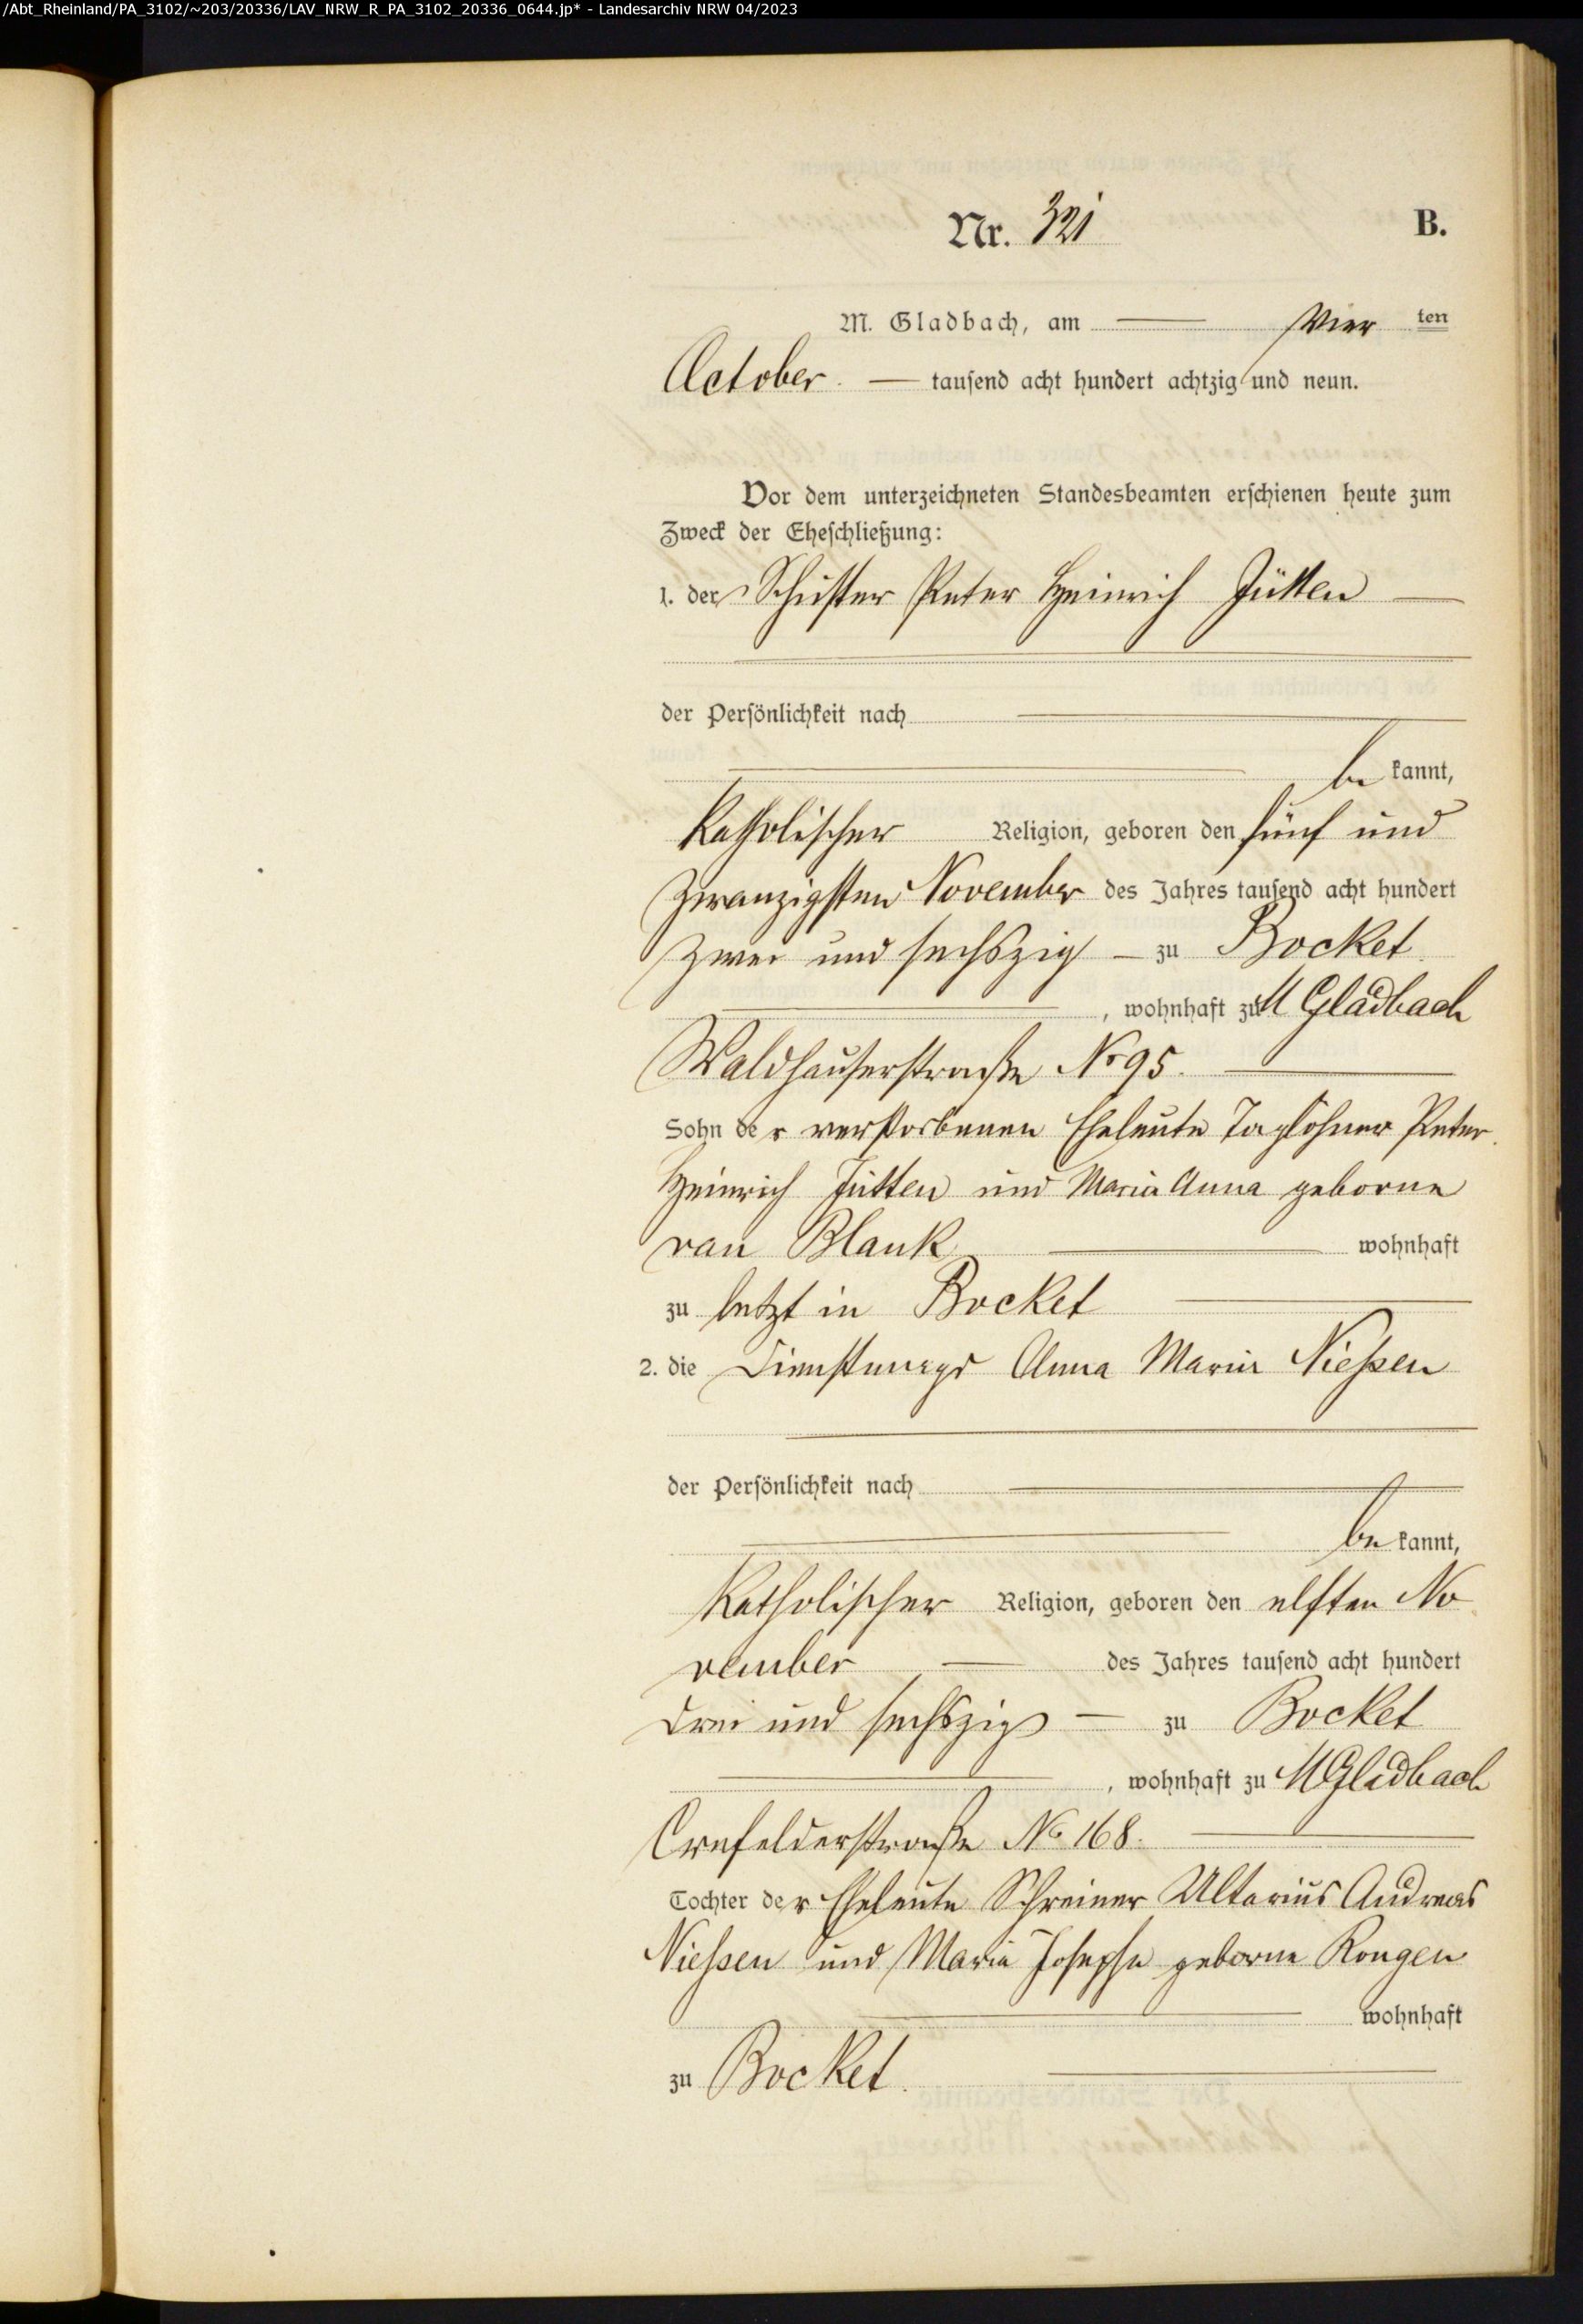 /Abt_Rheinland/PA_3102/~203/20336/LAV_NRW_R_PA_3102_20336_0644.jp* - Landesarchiv NRW 04/2023
Nr. 321 B.
M. Gladbach, am Vier ten
October tausend acht hundert achtzig und neun.
Vor dem unterzeichneten Standesbeamten erschienen heute zum
Zweck der Eheschließung:
1. der Schuster Peter Heinrich Jütten
der Persönlichkeit nach
be kannt,
Katholischer Religion, geboren den fünf und
zwanzigsten November des Jahres tausend acht hundert
zwei und sechszig zu Bocket
, wohnhaft zu M Gladbach
Waldhauserstraße No 95.
Sohn der verstorbenen Eheleute Taglöhner Peter
Heinrich Jütten und Maria Anna geborne
van Blank wohnhaft
zu letzt in Bocket
2. die Dienstmagd Anna Maria Nießen
der Persönlichkeit nach
be kannt,
Katholischer Religion, geboren den elften No
vember des Jahres tausend acht hundert
drei und sechszig zu Bocket
, wohnhaft zu M Gladbach
Crefelderstraße No 168.
Tochter der Eheleute Schreiner Andreas
Nießen und Maria Josepha geborne Rongen
wohnhaft
zu Bocket.